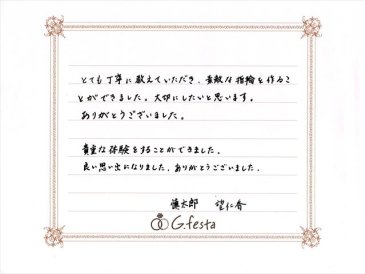 とても丁寧に教えていただき、素敵な指輪を作るこ
とができました。大切にしたいと思います。
ありがとうございました。
貴重な体験をすることができました。
良い思い出になりました。ありがとうございました。
慎太郎 望仁香
G.festa